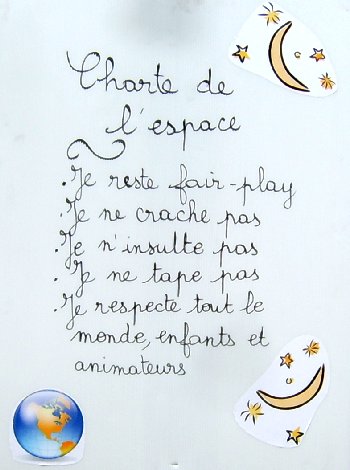 Charte de
l'espace
. Je reste fair-play
. Je ne crache pas
. Je n'insulte pas
. Je ne tape pas
. Je respecte tout le
monde, enfants et
animateurs